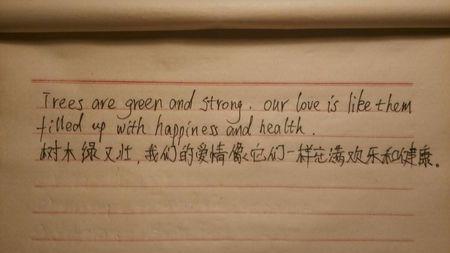 Trees are green and strong. our love is like them
filled up with happiness and health.
树木绿又壮,我们的爱情像它们一样充满欢乐和健康。